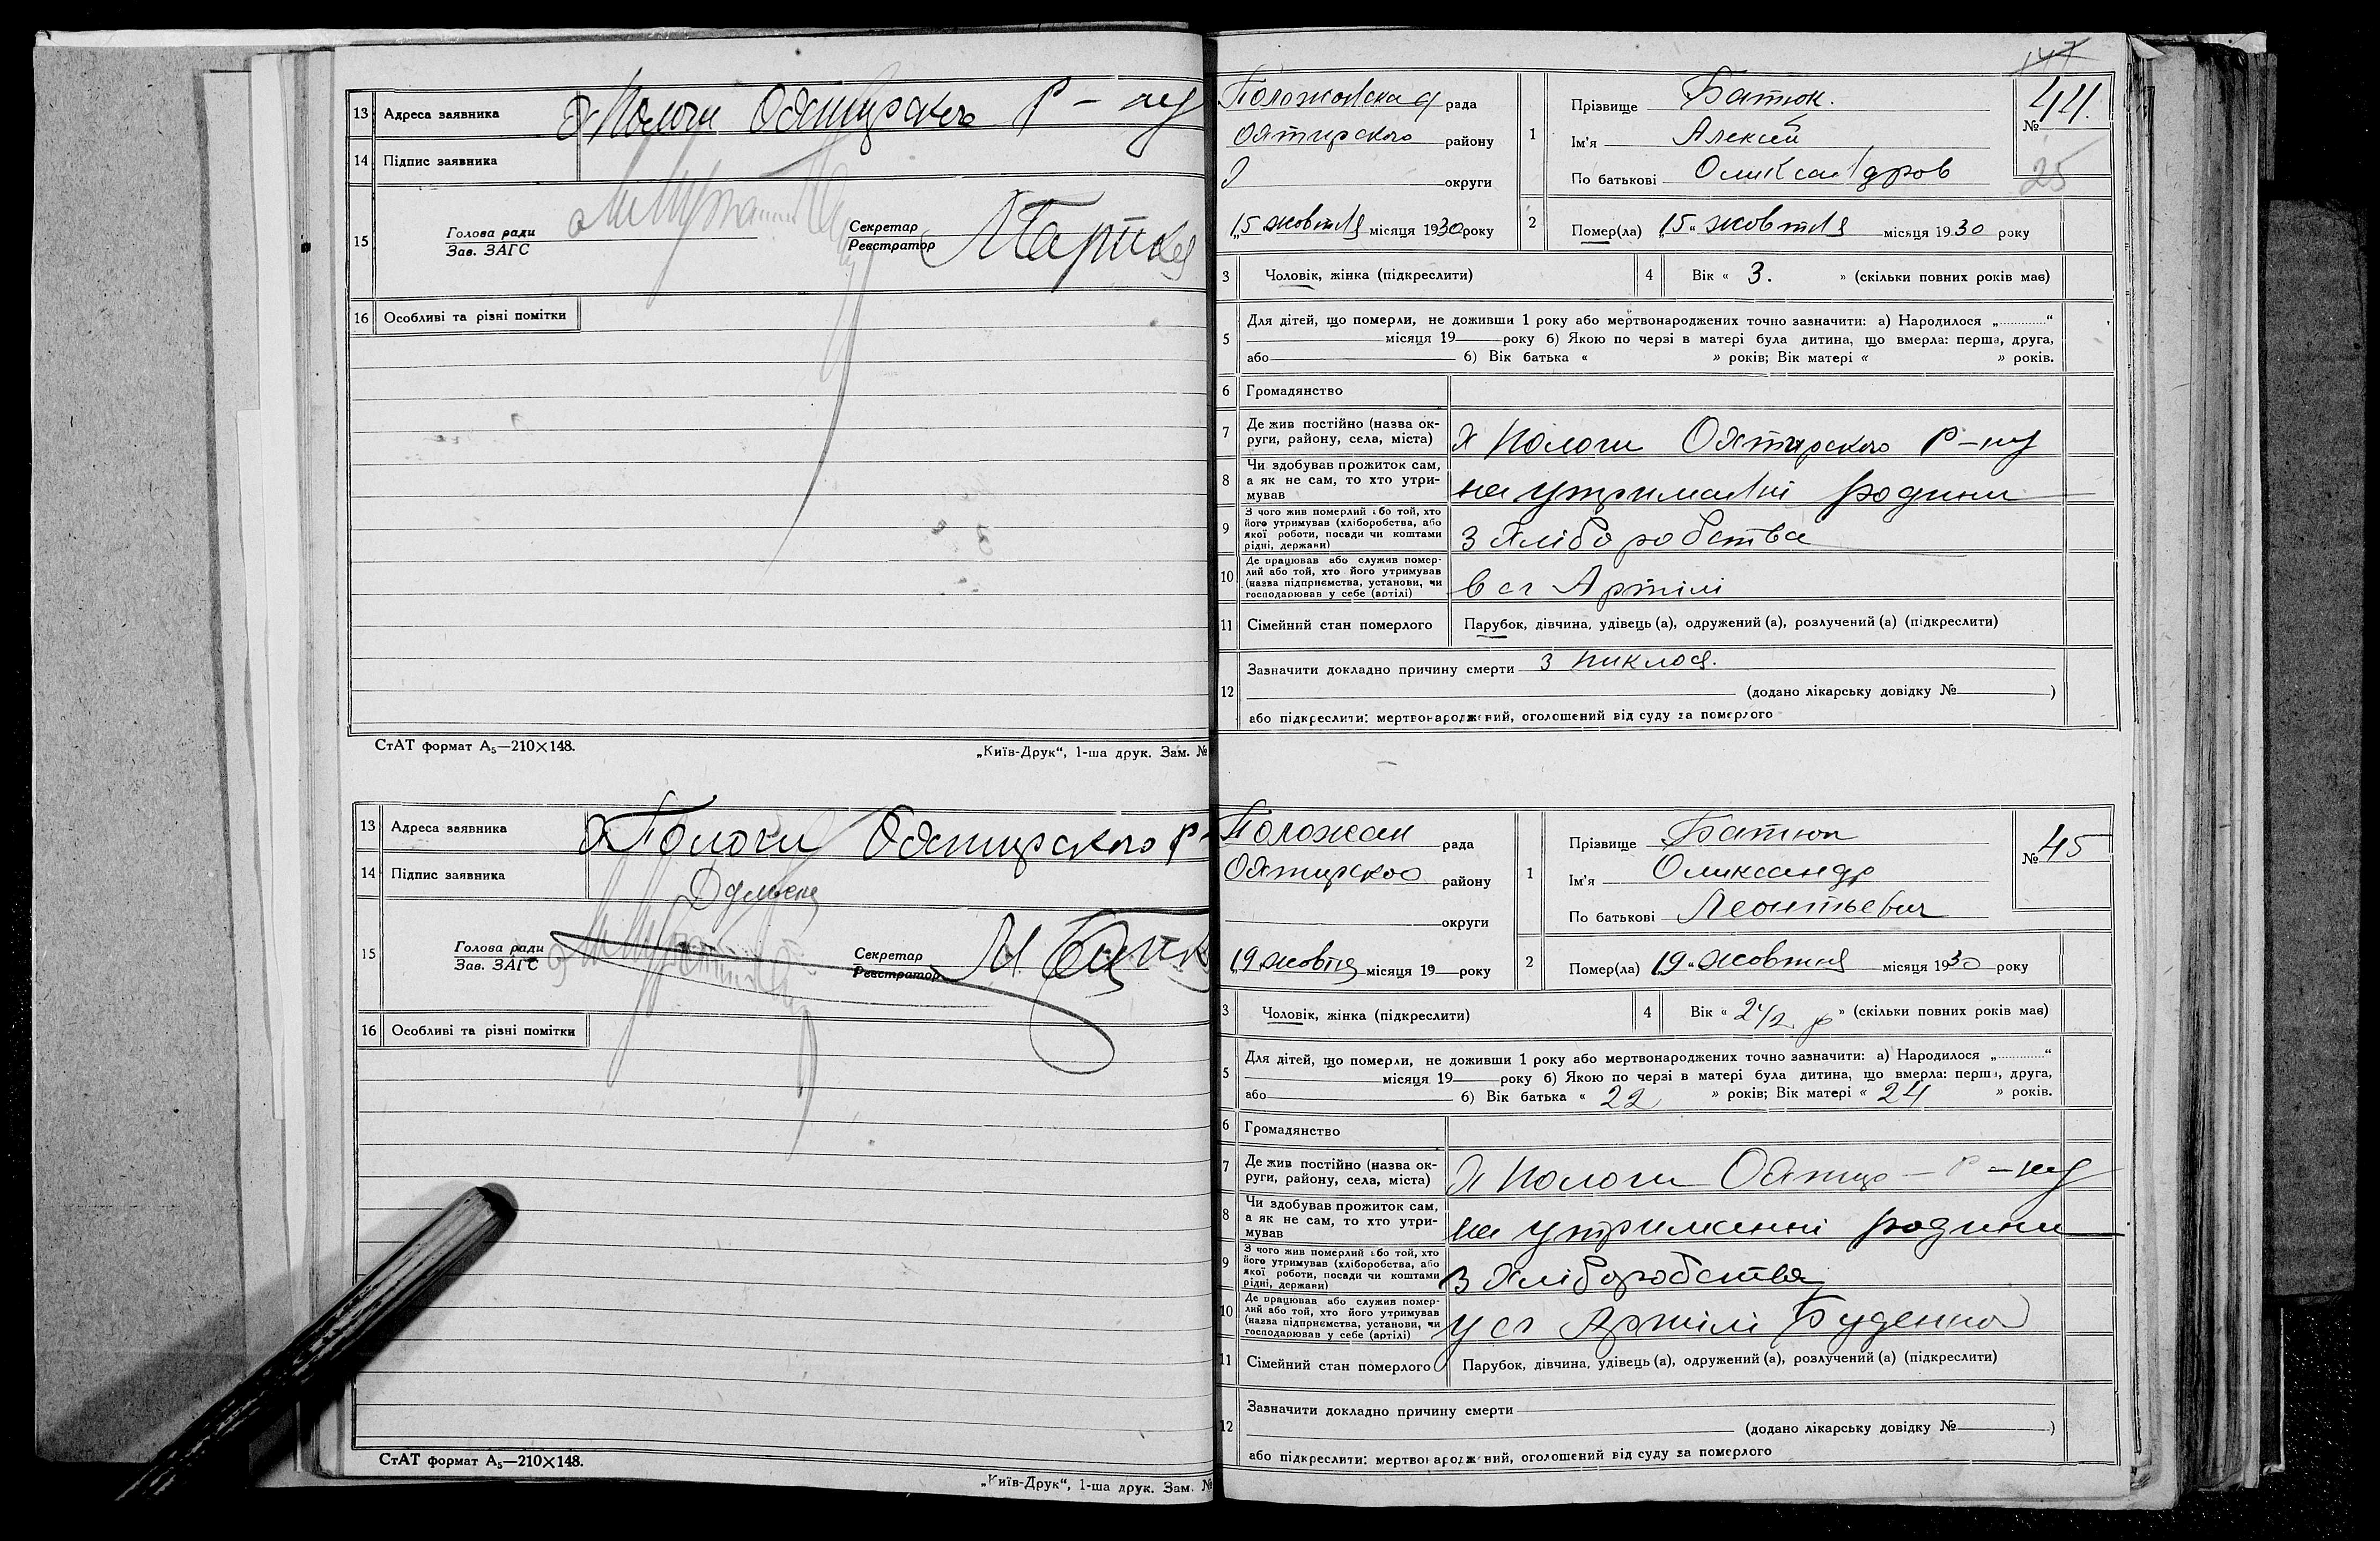 13 Адреса заявника х Пологи Охтирского р-ну
14 Підпис заявника
15 Голова ради
Зав. ЗАГС
Секретар
Реєстратор
16 Особливі та різні помітки
СтАТ формат А5—210×148.
„Київ-Друк“, 1-ша друк. Зам. №
13 Адреса заявника х Пологи Охтирского р-
14 Підпис заявника
15 Голова ради
Зав. ЗАГС
Секретар
Реєстратор
16 Особливі та різні помітки
СтАТ формат А5—210×148.
„Київ-Друк“, 1-ша друк. Зам. №
147
Положовская рада
Охтирского району
округи
„15 жовтня місяця 1930 року
1 Прізвище Батюк.
Ім'я Алексей
По батькові Олександров
№ 44.
25
2 Помер(ла) „15“ жовтня місяця 1930 року
3 Чоловік, жінка (підкреслити)
4 Вік « 3. » (скільки повних років має)
5 Для дітей, що померли, не доживши 1 року або мертвонароджених точно зазначити: а) Народилося „............“
місяця 19 року б) Якою по черзі в матері була дитина, що вмерла: перша, друга,
або б) Вік батька « » років; Вік матері « » років.
6 Громадянство
7 Де жив постійно (назва ок-
руги, району, села, міста) х Пологи Охтирского р-ну
8 Чи здобував прожиток сам,
а як не сам, то хто утри-
мував на утриманні родини
9 З чого жив померлий або той, хто
його утримував (хліборобства, або
якої роботи, посади чи коштами
рідні, держави) З хліборобства
10 Де працював або служив помер-
лий або той, хто його утримував
(назва підприємства, установи, чи
господарював у себе (артілі) в сг Артілі
11 Сімейний стан померлого Парубок, дівчина, удівець (а), одружений (а), розлучений (а) (підкреслити)
12 Зазначити докладно причину смерти
(додано лікарську довідку № )
або підкреслити: мертвонароджений, оголошений від суду за померлого
Положан рада
Охтирского району
округи
19 жовтня місяця 19 року
1 Прізвище Батюк
Ім'я Олександр
По батькові Леонтьевич
№ 45
2 Помер(ла) „19“ жовтня місяця 1930 року
3 Чоловік, жінка (підкреслити)
4 Вік « 2 1/2 р » (скільки повних років має)
5 Для дітей, що померли, не доживши 1 року або мертвонароджених точно зазначити: а) Народилося „............“
місяця 19 року б) Якою по черзі в матері була дитина, що вмерла: перша, друга,
або б) Вік батька « 22 » років; Вік матері « 24 » років.
6 Громадянство
7 Де жив постійно (назва ок-
руги, району, села, міста) х Пологи Охтир - р-ну
8 Чи здобував прожиток сам,
а як не сам, то хто утри-
мував на утриманні родини
9 З чого жив померлий або той, хто
його утримував (хліборобства, або
якої роботи, посади чи коштами
рідні, держави) З хліборобства
10 Де працював або служив помер-
лий або той, хто його утримував
(назва підприємства, установи, чи
господарював у себе (артілі) у сг Артілі Буденно
11 Сімейний стан померлого Парубок, дівчина, удівець (а), одружений (а), розлучений (а) (підкреслити)
12 Зазначити докладно причину смерти
(додано лікарську довідку № )
або підкреслити: мертвонароджений, оголошений від суду за померлого